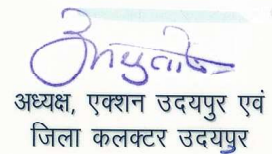 अध्यक्ष, एक्शन उदयपुर एवं
जिला कलक्टर उदयपुर